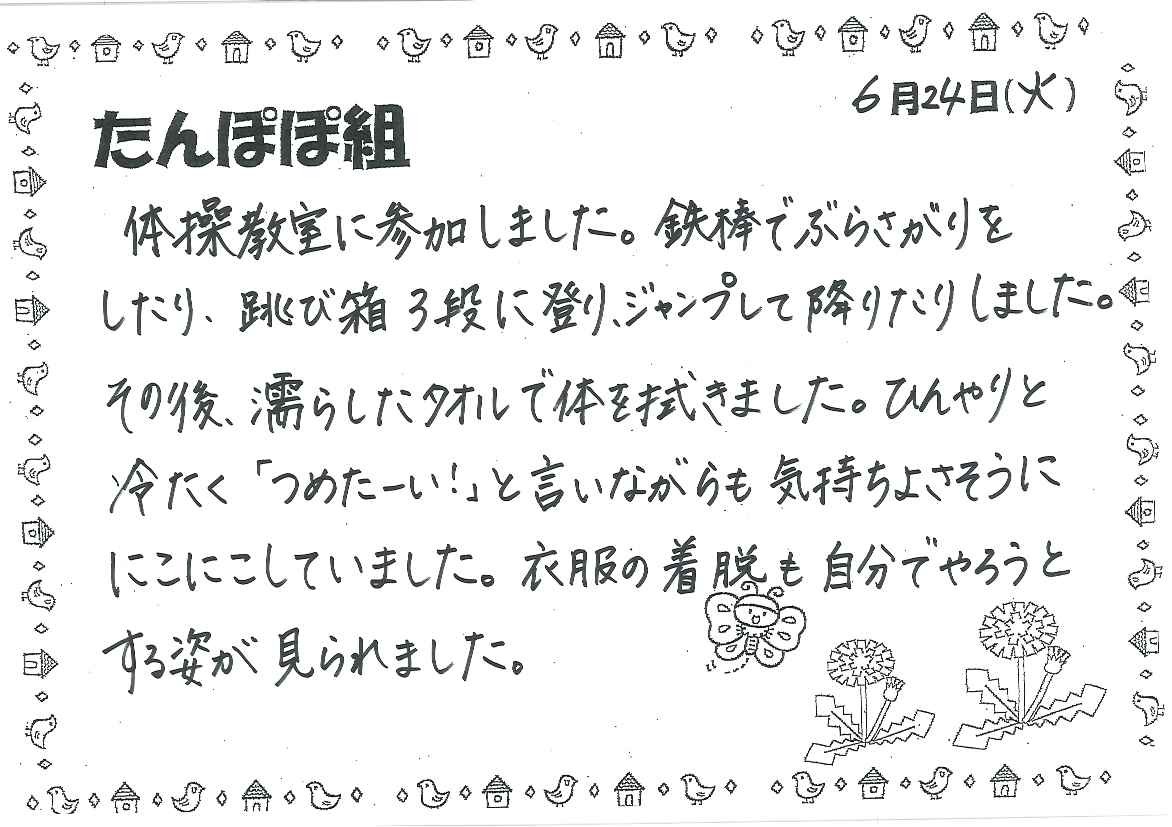 6月24日(火)
たんぽぽ組
体操教室に参加しました。鉄棒でぶらさがりを
したり、跳び箱3段に登り、ジャンプして降りたりしました。
その後、濡らしたタオルで体を拭きました。ひんやりと
冷たく「つめたーい!」と言いながらも気持ちよさそうに
にこにこしていました。衣服の着脱も自分でやろうと
する姿が見られました。